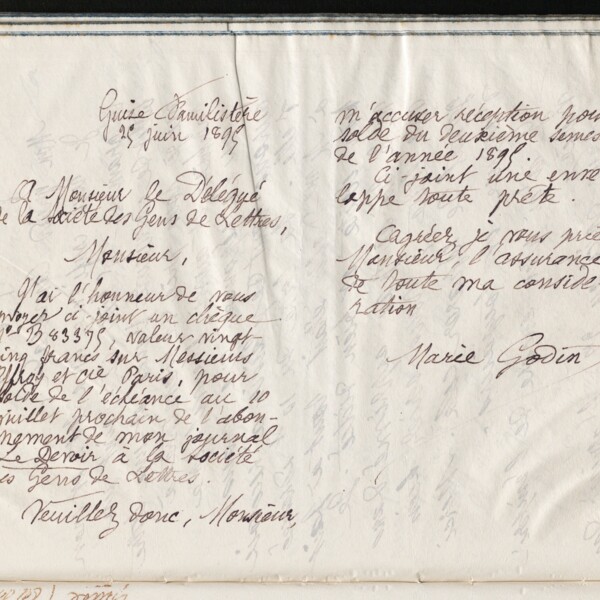 Guise Familistère
25 juin 1895
A Monsieur le Délégué
de la Société des Gens de Lettres,
Monsieur,
J'ai l'honneur de vous
envoyer ci-joint un chèque
N° B 83375, valeur vingt-
cinq francs sur Messieurs
et Cie Paris, pour
solde de l'échéance au 10
juillet prochain de l'abon-
nement de mon journal
Le Devoir à la Société
des Gens de Lettres.
Veuillez donc, Monsieur,
m'accuser réception pour
solde du deuxième semes
de l'année 1895.
Ci-joint une enve
loppe toute prête.
Agréez, je vous prie
Monsieur, l'assurance
de toute ma considé
ration
Marie Godin